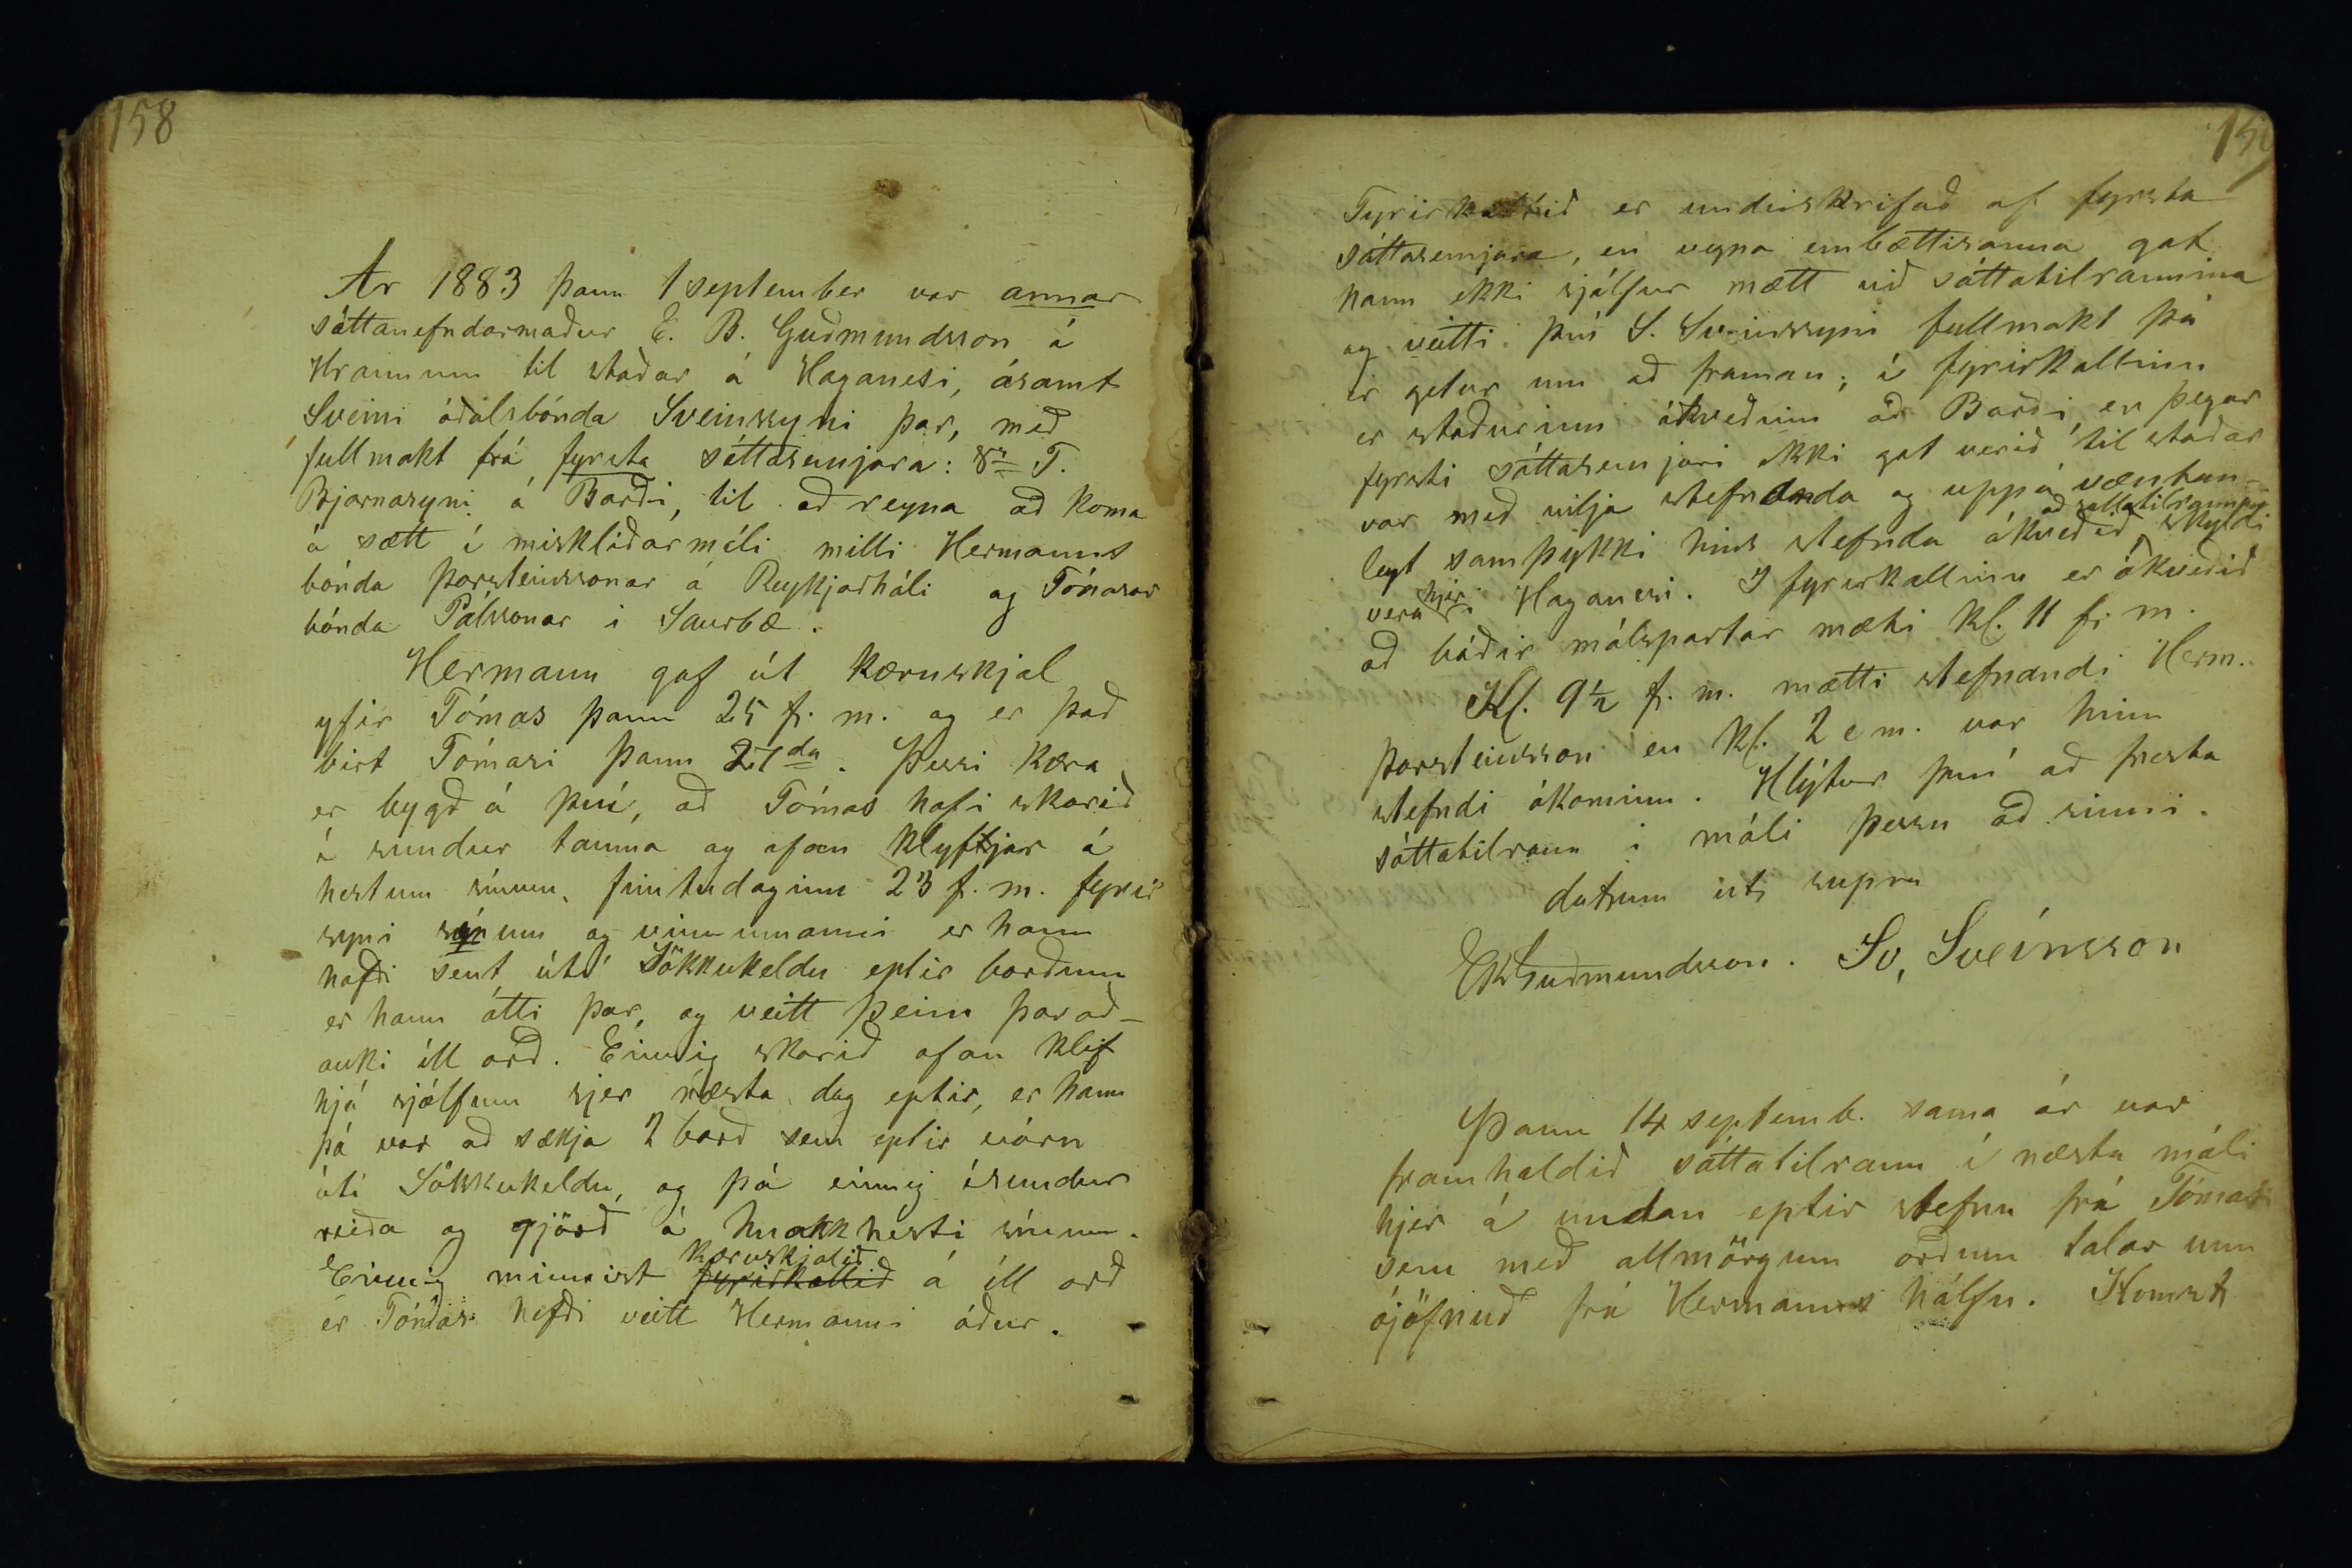 158
Ár 1883 þann 1 september var annar
sáttanefndarmaður E. B. Guðmundsson á
Hraunum til staðar á Haganesi, ásamt
Sveini óðalsbónda Sveinssyni þar, með
fullmakt frá fyrsta sáttasemjara: Sr T.
Bjarnasyni á Barði, til að reyna að koma
á sætt í misklíðarmáli milli Hermanns
bónda Þorsteinssonar á Reykjarhóli og Tómasar
bónda Pálssonar í Saurbæ.
Hermann gaf út kæruskjal
yfir Tómas þann 25 f. m. og er það
birt Tómasi þann 27da. Þessi kæra
er bygð á því, að Tómas hafi skorið
í sundur tauma og ofan klyftjar á
hestum sínum, fimtudaginn 23 f. m. fyrir
syni sínum og vinnumanni er hann
hafði sent útí Sökkukeldu eptir borðum
er hann átti þar, og veitt þeim þarað-
auki ill orð. Einnig skorið ofan klif
hjá sjálfum sjer næsta dag eptir, er hann
þá var að sækja 2 borð sem eptir vóru
úti Sökkukeldu, og þá einnig ísundur
reiða og gjörð á hnakkhesti sínum.
Einnig minnist fyrirkallið kæruskjalið á ill orð
er Tómas hefði veitt Hermanni áður.
159
Fyrirkallið er undirskrifað af fyrsta
sáttasemjara, en vegna embættisanna gat
hann ekki sjálfur mætt við sáttatilraunina
og veitti því S. Sveinssyni fullmakt þá
er getur um að framan; í fyrirkallinu
er staðurinn ákveðinn að Barði, en þegar
fyrsti sáttasemjari ekki gat verið til staðar
var með vilja stefnanda og uppá væntan-
legt samþykki hins stefnda ákveðið að sáttatilraunin skyldi
vera hjer í Haganesi. Í fyrirkallinu er ákveðið
að báðir málspartar mæti kl. 11 f. m.
Kl. 9½ f. m. mætti stefnandi Herm.
Þorsteinsson en kl. 2 e m. var hinn
stefndi ókominn. Hlýtur því að fresta
sáttatilraun í máli þessu að sinni.
datum uts supra
EBGuðmundsson. Sv, Sveinsson
Þann 14 septemb. sama ár var
framhaldið sáttatilraun í næsta máli
hjer á undan eptir stefnu frá Tómasi
sem með allmörgum orðum talar um
ójöfnuð frá Hermanns hálfu. Komst